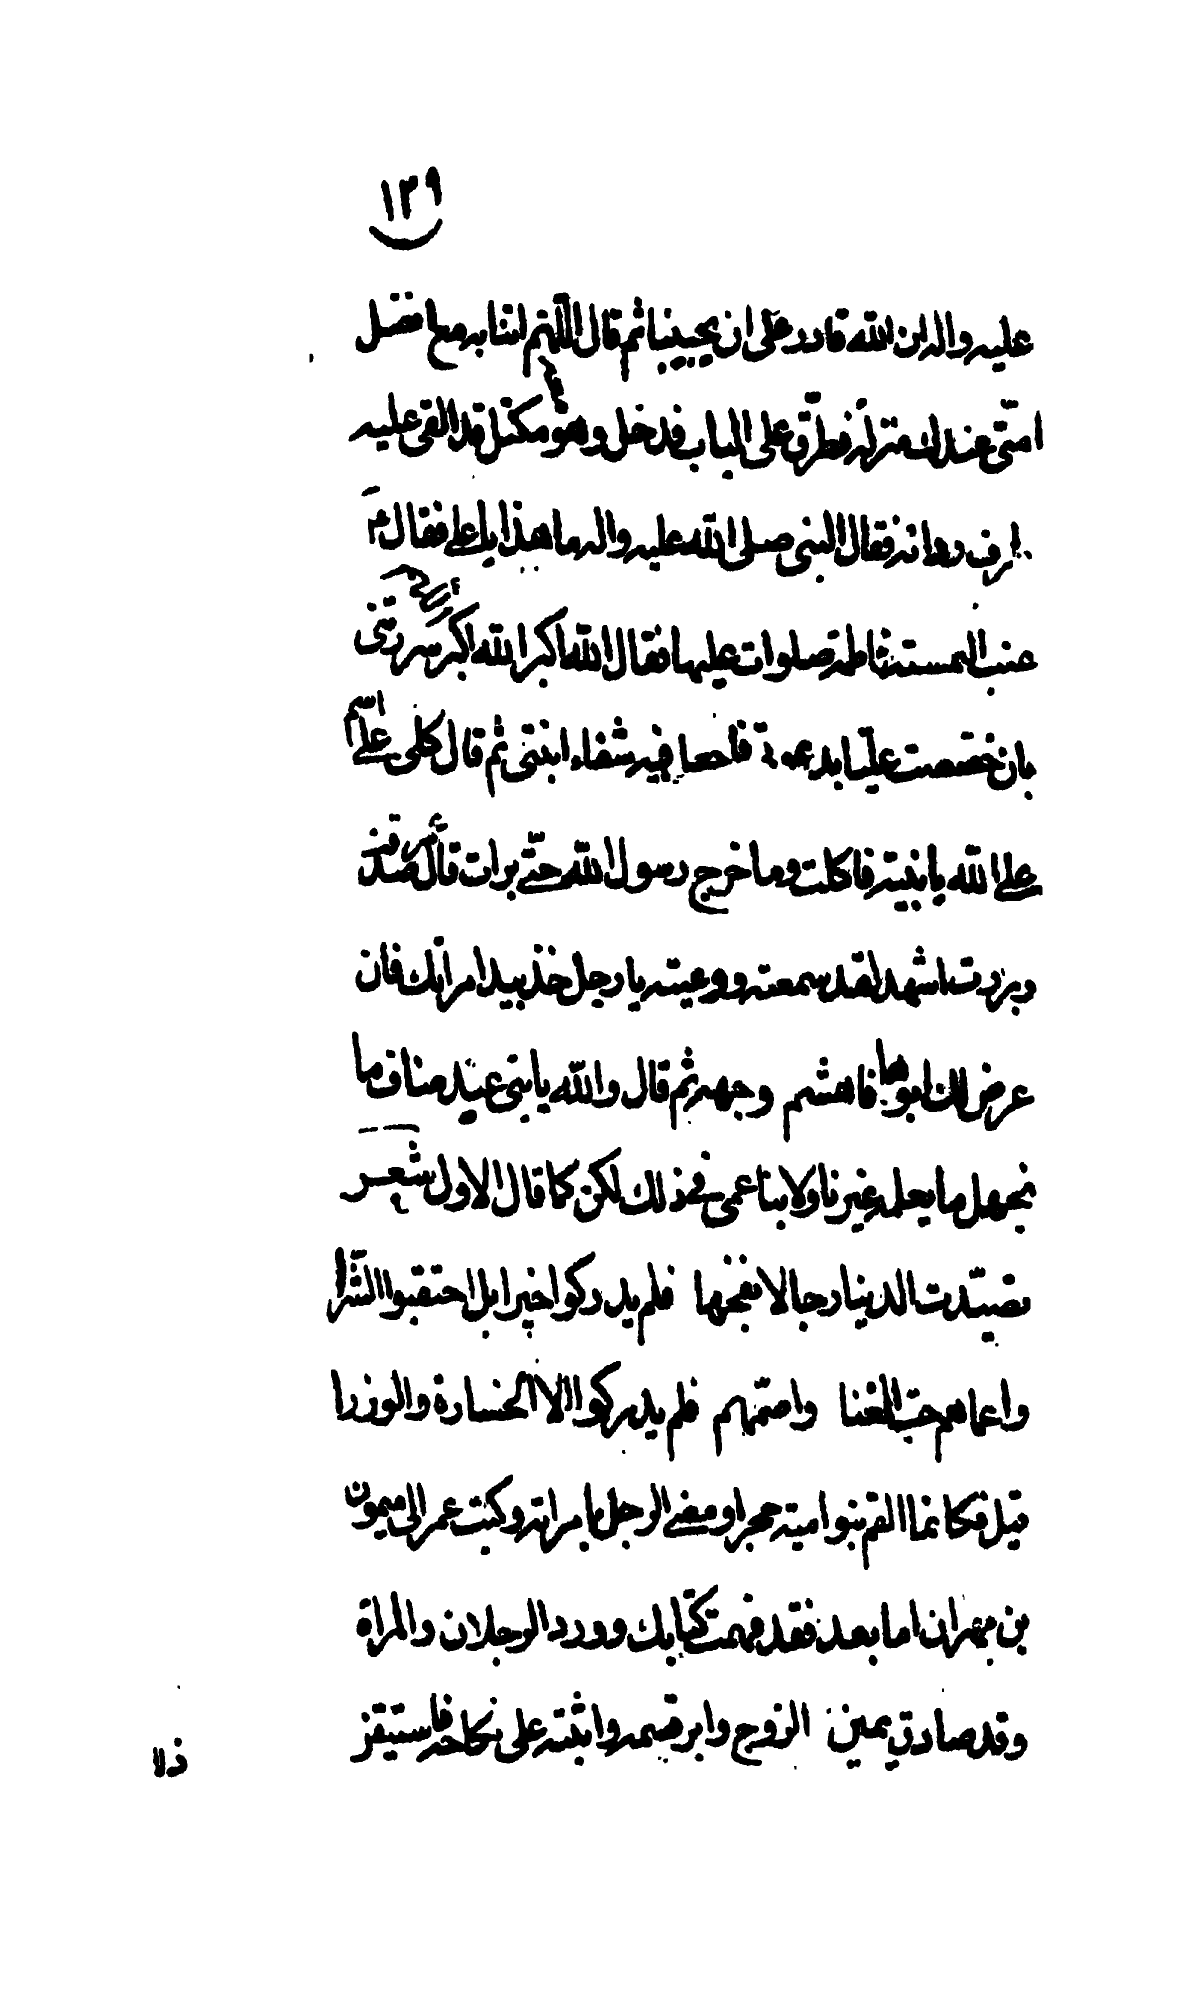 ١٣٩
عليه واله ان الله قادر على ان يجيبنا ثم قال اللهم ائتنا به مع افضل
امتى عندك منزلة فطرق على الباب فدخل وهو مكتل قد القى عليه
طرف ردائه فقال النبى صلى الله عليه واله ما هذا يا على فقال م
عنب التمسته لفاطمة صلوات عليها فقال الله اكبر الله اكبر سررتنى
بان خصصت عليا بدعوة فاجعل فيه شفاء ابنتى ثم قال كلى على اسم
على الله يا بنية فاكلت وما خرج رسول الله حتى برأت قال صدقت
وبررت اشهد لقد سمعته ووعيته يا رجل خذ بيد امراتك فان
عرض لك ابوها فاهشم وجهه ثم قال والله يا بنى عبد مناف ما
نجهل ما يعلمه غيرنا ولا بنا عمى فى ذلك لكن كما قال الاول شعر
تصيدت الدنيا رجالا بفخها فلم يدركوا خيرا بل احتقبوا الشرا
واعماهم حب الغنا واصمهم فلم يدركوا الا الخسارة والوزرا
قيل فكانما القم بنو امية حجرا ومضى الرجل بامراته وكتب عمر الى ميمون
بن مهران اما بعد فقد فهمت كتابك وورد الرجلان والمراة
وقد صادق يمين الزوج وابر قسمه واثبته على نكاحه فاستيقن
ذلا